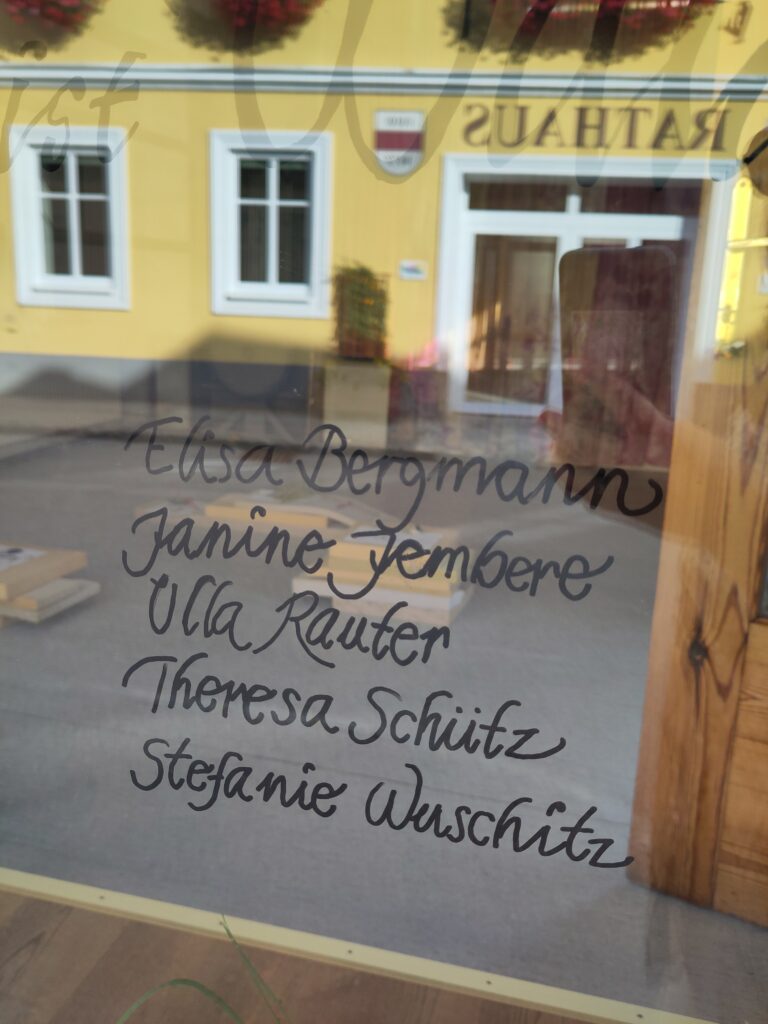 ist
RATHAUS
Elisa Bergmann
Janine Jembere
Ulla Rauter
Theresa Schütz
Stefanie Wuschitz